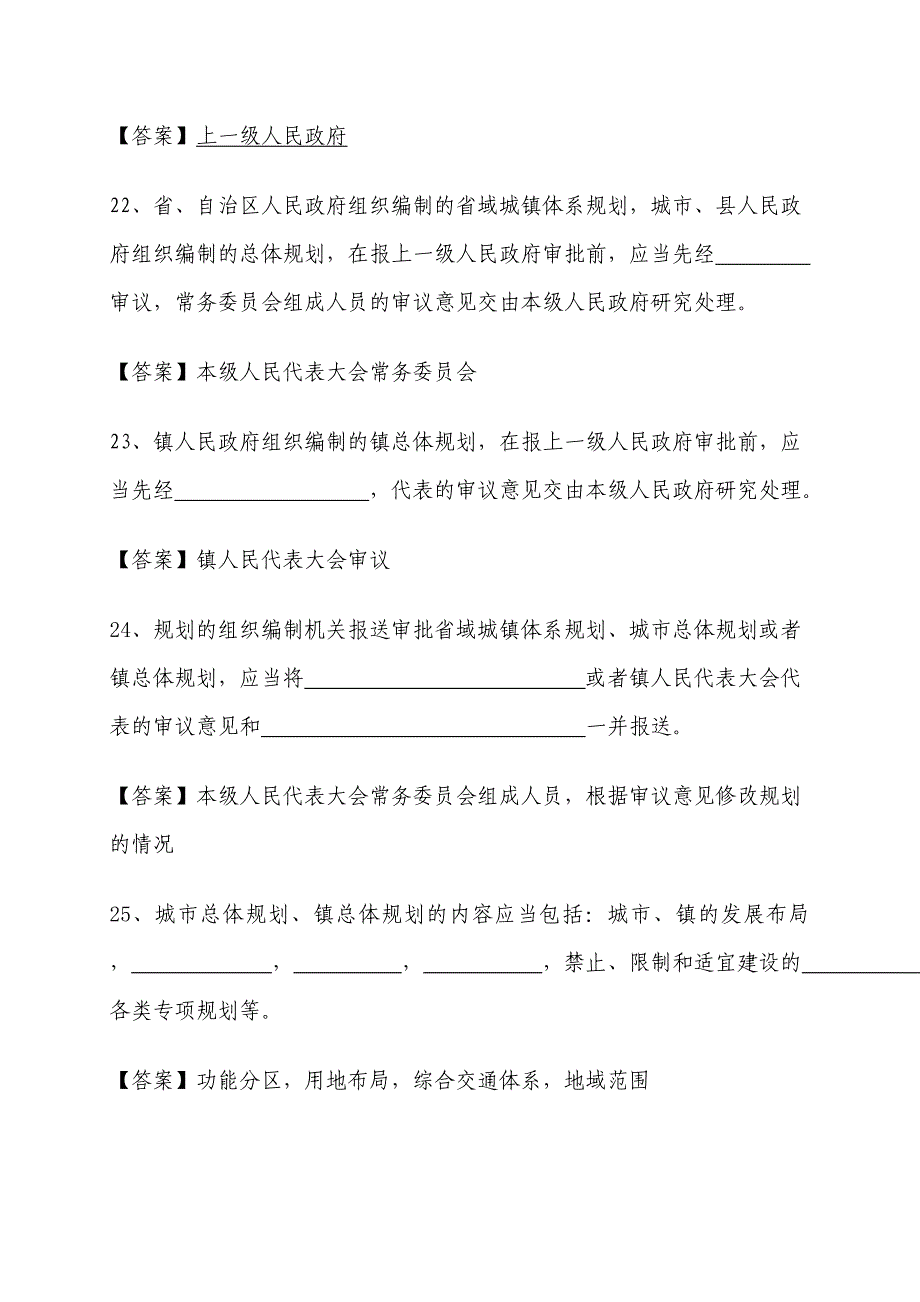 【答案】上一级人民政府
22、省、自治区人民政府组织编制的省域城镇体系规划，城市、县人民政
府组织编制的总体规划，在报上一级人民政府审批前，应当先经_________
审议，常务委员会组成人员的审议意见交由本级人民政府研究处理。
【答案】本级人民代表大会常务委员会
23、镇人民政府组织编制的镇总体规划，在报上一级人民政府审批前，应
当先经__________________，代表的审议意见交由本级人民政府研究处理。
【答案】镇人民代表大会审议
24、规划的组织编制机关报送审批省域城镇体系规划、城市总体规划或者
镇总体规划，应当将__________________________或者镇人民代表大会代
表的审议意见和______________________________一并报送。
【答案】本级人民代表大会常务委员会组成人员，根据审议意见修改规划
的情况
25、城市总体规划、镇总体规划的内容应当包括：城市、镇的发展布局
，_____________，__________，___________，禁止、限制和适宜建设的___________
各类专项规划等。
【答案】功能分区，用地布局，综合交通体系，地域范围